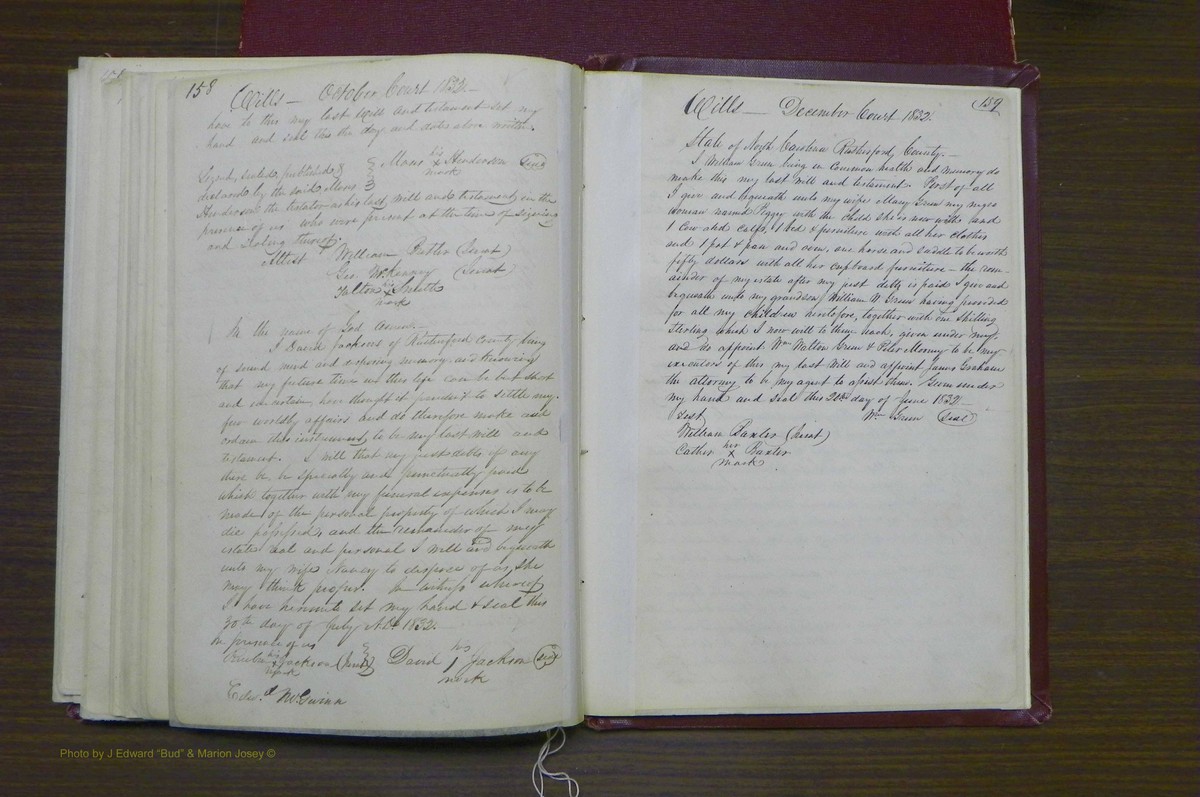 158
Wills — October Court 1832 —
here to this my last Will and testament set my
hand and seal this the day and date above written
Signed, sealed, published & Moses his X mark Henderson (Seal)
declared by the said Moses
Henderson the testator as his last will and testament in the
presence of us who were present at the time of signing
and sealing thereof
Attest William (Jurat)
Geo. McKinney (Jurat)
his X mark Smith
In the name of God Amen —
I David Jackson of Rutherford County being
of sound mind and disposing memory and knowing
that my future time in this life can be but short
and uncertain, have thought it prudent to settle my
few worldly affairs and do therefore make and
ordain this instrument to be my last Will and
testament. I will that my just debts if any
there be, be specially and punctually paid
which together with my funeral expenses is to be
made of the personal property of which I may
die possessed, and the remainder of my
estate real and personal I will and bequeath
unto my wife Nancy to dispose of as she
may think proper. In witness whereof
I have hereunto set my hand & seal this
30th day of July A.D. 1832.
In presence of us
his X mark Jackson (Jurat) David his 1 mark Jackson (Seal)
Edw.d McGuinn
159
Wills — December Court 1832.
State of North Carolina Rutherford County. —
I William Green being in common health and memory do
make this my last will and testament. First of all
I give and bequeath unto my wife Mary Green my negro
woman named Peggy with the child she is now with and
1 Cow and calf, 1 bed & furniture with all her clothes
and 1 pot & pan and oven, one horse and saddle to be worth
fifty dollars with all her cupboard furniture — the rem-
ainder of my estate after my just debts is paid I give and
bequeath unto my grandson William W. Green having provided
for all my children heretofore, together with one shilling
sterling which I now will to them each, given under my
and do appoint Wm Walton Green & Peter Mooney to be my
executors of this my last will and appoint James Graham
the attorney to be my agent to assist them. Given under
my hand and seal this 22nd day of June 1832 —
Test Wm Green (Seal)
William Baxter (Jurat)
Cather her X mark Baxter
Photo by J Edward "Bud" & Marion Josey ©